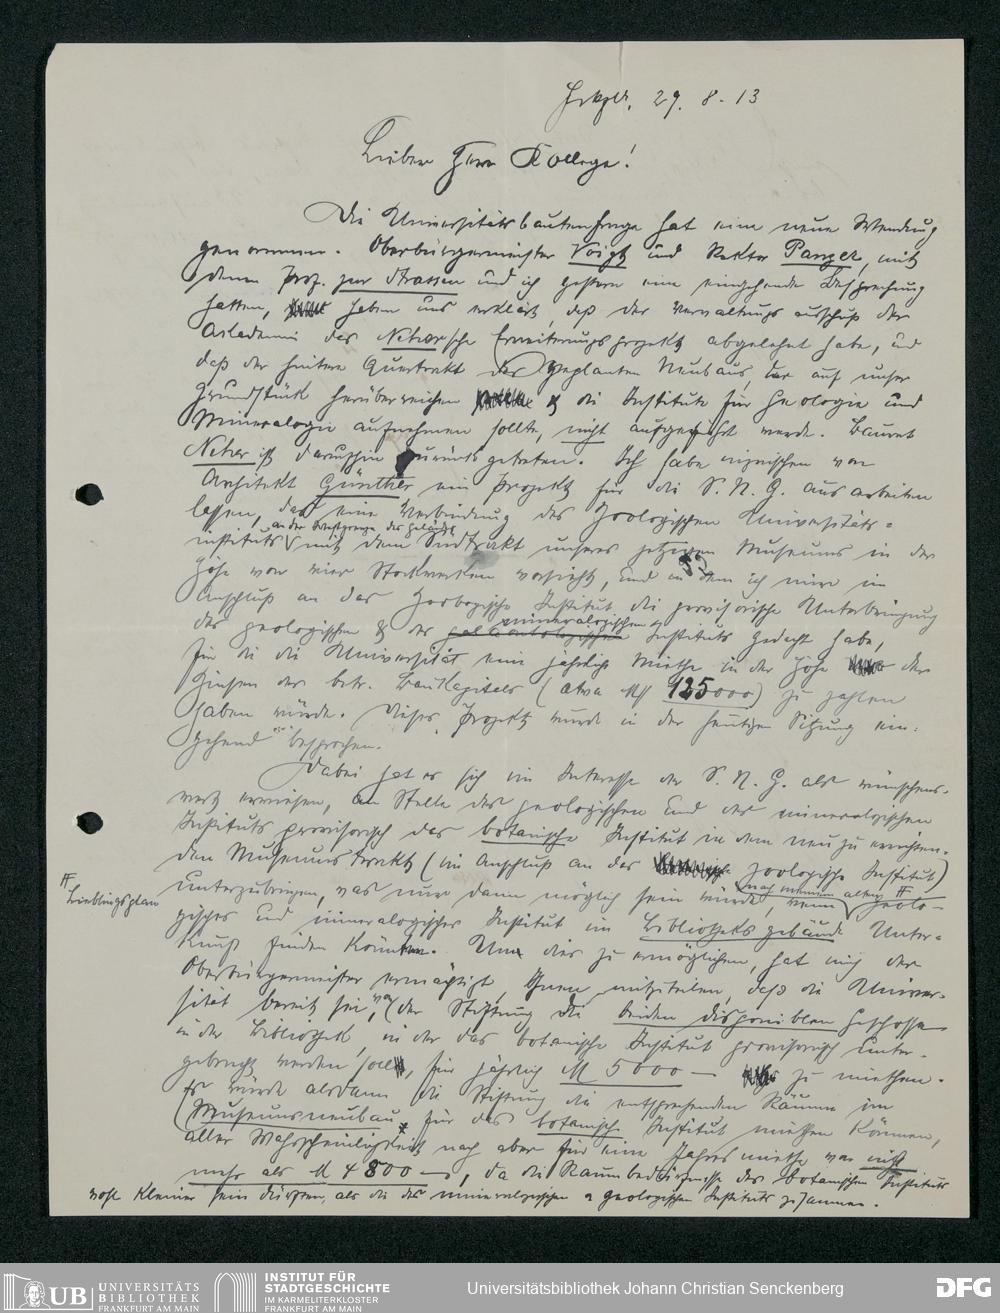 29. 8. 13
Lieber Herr Kollege!
Die Universitätsbautenfrage hat eine neue Wendung
genommen. Oberbürgermeister Voigt und Rektor Panzer, mit
denen Prof. zur Strassen und ich gestern eine eingehende Besprechung
hatten, haben uns erklärt, daß der Verwaltungsausschuß der
Akademie das Neher'sche Erweiterungsprojekt abgelehnt habe, und
daß der hintere Quertrakt des geplanten Neubaus, der auf unser
Grundstück herüberreichen & die Institute für Geologie und
Mineralogie aufnehmen sollte, nicht aufgeführt werde. Baurat
Neher ist daraufhin zurückgetreten. Ich habe inzwischen von
Architekt Günther ein Projekt für die S. N. G. ausarbeiten
lassen, das eine Verbindung des Zoologischen Universitäts-
an der Westgrenze des Geländes
instituts mit dem Südtrakt unseres jetzigen Museums in der
Höhe von vier Stockwerken vorsieht, und in dem ich mir im
Anschluß an das Zoologische Institut die provisorische Unterbringung
mineralogischen
des geologischen & des Instituts gedacht habe,
für die die Universität eine jährliche Miethe in der Höhe der
Zinsen des betr. Baukapitals (etwa M 125000) zu zahlen
haben würde. Dieses Projekt wurde in der heutigen Sitzung ein-
gehend besprochen.
Dabei hat es sich im Interesse der S. N. G. als wünschens-
wert erwiesen, an Stelle des geologischen und des mineralogischen
Instituts provisorisch das botanische Institut in dem neu zu errichten-
den Museumstrakt (im Anschluß an das zoologische Institut)
unterzubringen, was nur dann möglich sein würde, wenn geolo-
(nach meinem alten #
# Lieblingsplan
gisches und mineralogisches Institut im Bibliotheksgebäude Unter-
kunft finden könnten. Um dies zu ermöglichen, hat mich der
Oberbürgermeister ermächtigt, Ihnen mitzuteilen, daß die Univer-
sität bereit sei, von der Stiftung die beiden disponiblen Geschosse
in der Bibliothek, in der das botanische Institut provisorisch unter-
gebracht werden soll, für jährlich M 5000 — zu miethen.
Es würde alsdann die Stiftung die entsprechenden Räume im
Museumsneubau für das botanische Institut miethen können,
aller Wahrscheinlichkeit nach aber für eine Jahresmiethe von nicht
mehr als M 4800 —, da die Raumbedürfnisse des botanischen Instituts
wohl kleiner sein dürften, als die des mineralogischen & geologischen Instituts zusammen.
UB UNIVERSITÄTS
BIBLIOTHEK
FRANKFURT AM MAIN
INSTITUT FÜR
STADTGESCHICHTE
IM KARMELITERKLOSTER
FRANKFURT AM MAIN
Universitätsbibliothek Johann Christian Senckenberg
DFG